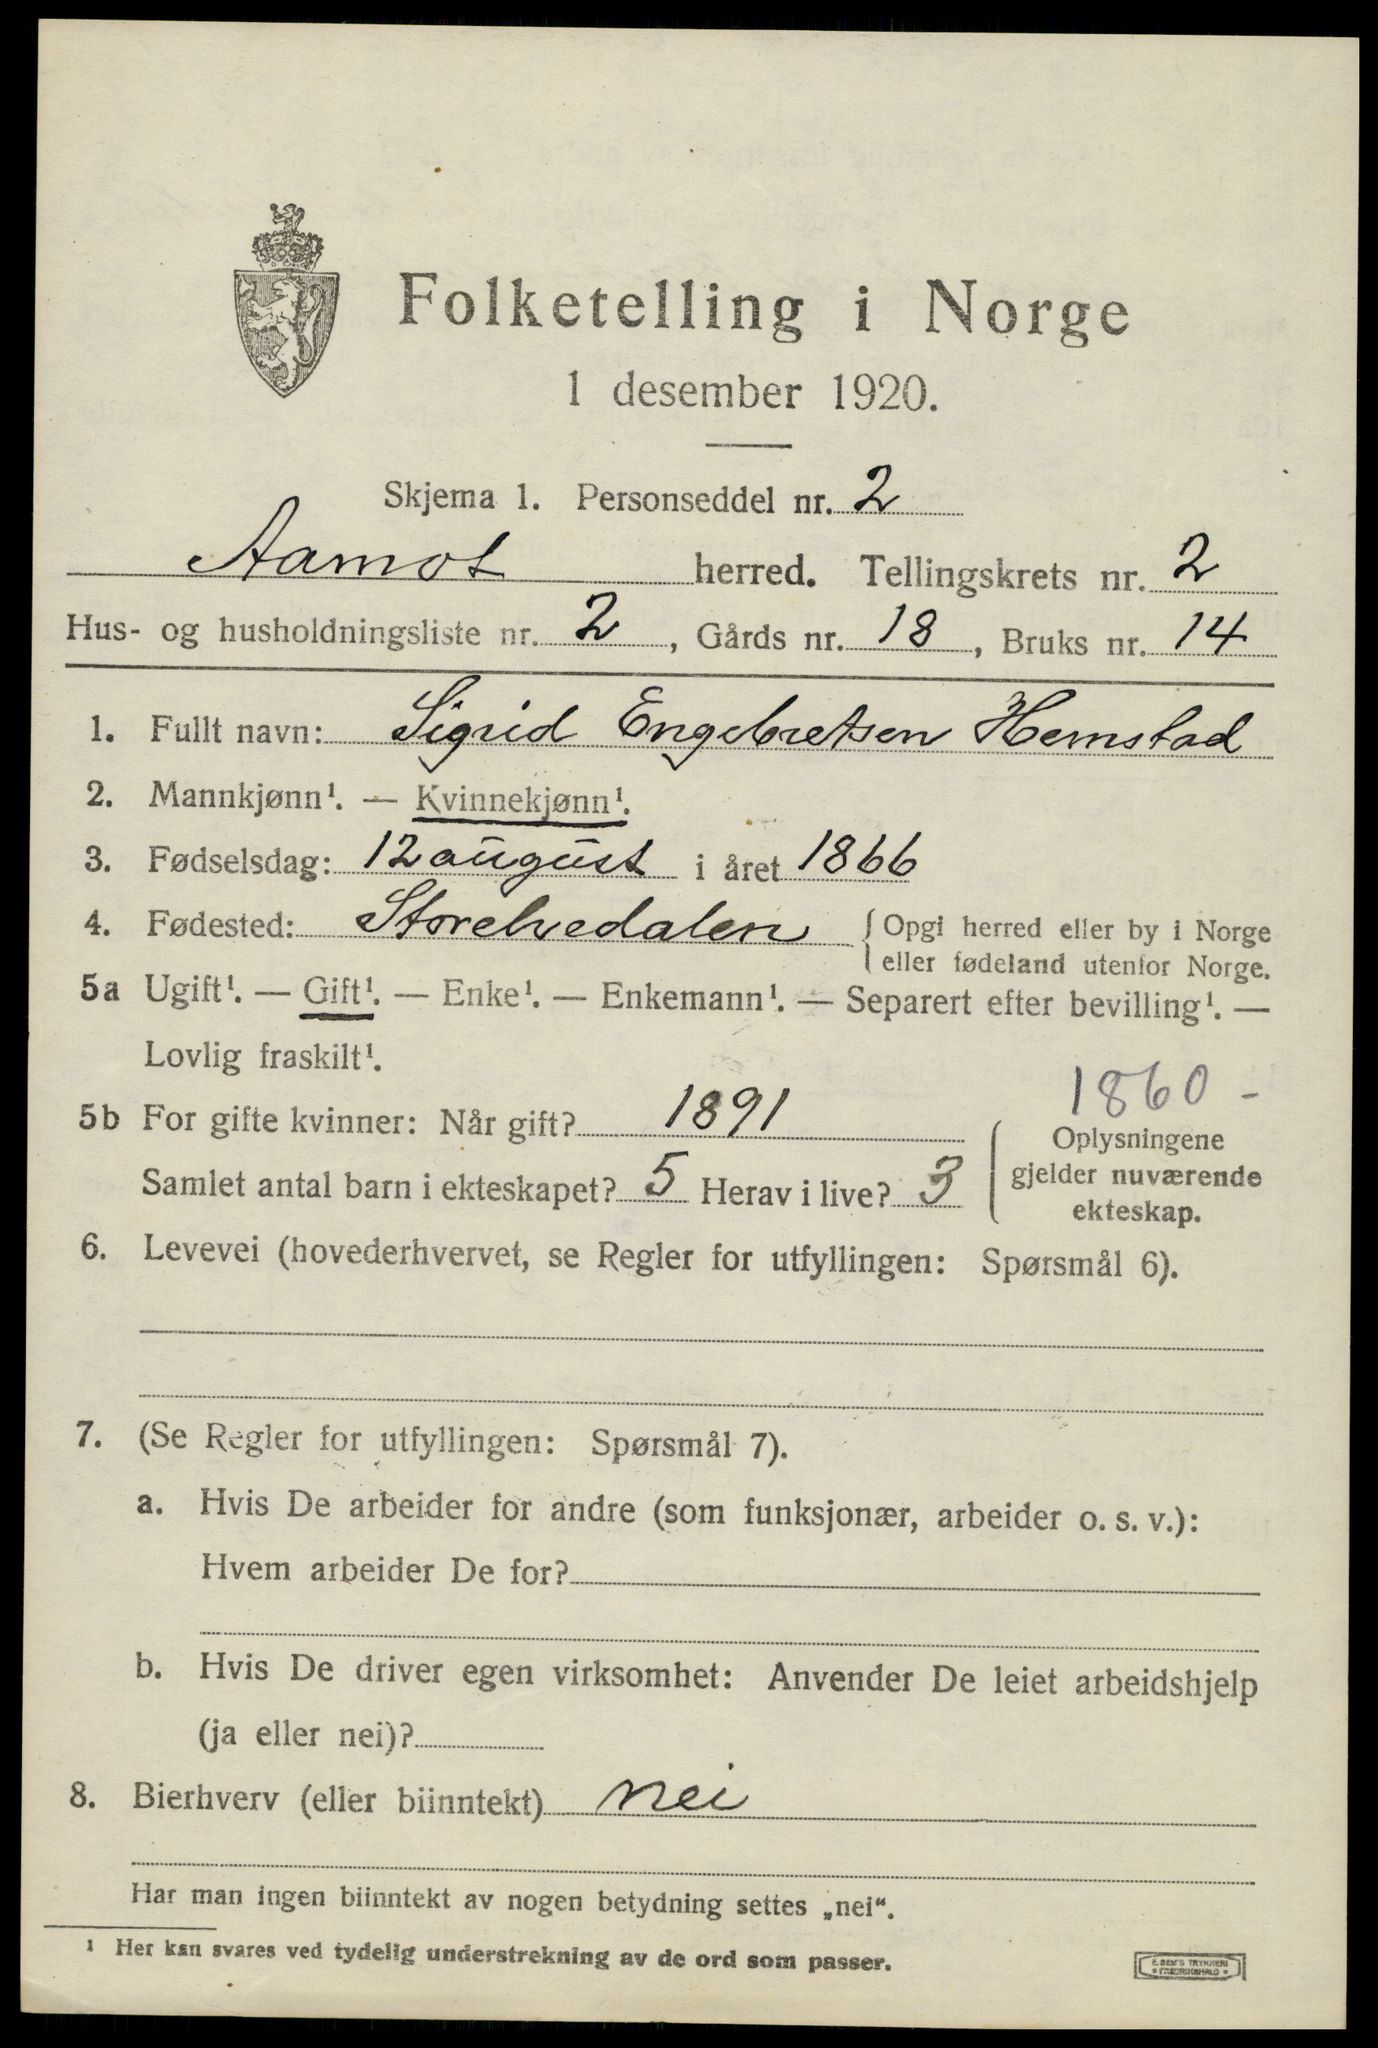 Folketelling i Norge
1 desember 1920.
Skjema 1. Personseddel nr. 2
Aamot herred. Tellingskrets nr. 2
Hus- og husholdningsliste nr. 2, Gårds nr. 18, Bruks nr. 14
1. Fullt navn: Sigrid Engebretsen Hemstad
2. Mannkjønn¹. — Kvinnekjønn¹.
3. Fødselsdag: 12 august i året 1866
4. Fødested: Storelvedalen { Opgi herred eller by i Norge
eller fødeland utenfor Norge.
5a Ugift¹. — Gift¹. — Enke¹. — Enkemann¹. — Separert efter bevilling¹. —
Lovlig fraskilt¹.
1860 -
5b For gifte kvinner: Når gift? 1891
Samlet antal barn i ekteskapet? 5 Herav i live? 3
Oplysningene
gjelder nuværende
ekteskap.
6. Levevei (hovederhvervet, se Regler for utfyllingen: Spørsmål 6).
7. (Se Regler for utfyllingen: Spørsmål 7).
a. Hvis De arbeider for andre (som funksjonær, arbeider o. s. v.):
Hvem arbeider De for?
b. Hvis De driver egen virksomhet: Anvender De leiet arbeidshjelp
(ja eller nei)?
8. Bierhverv (eller biinntekt) nei
Har man ingen biinntekt av nogen betydning settes „nei“.
¹ Her kan svares ved tydelig understrekning av de ord som passer.
E. SEM'S TRYKKERI
FREDRIKSHALD